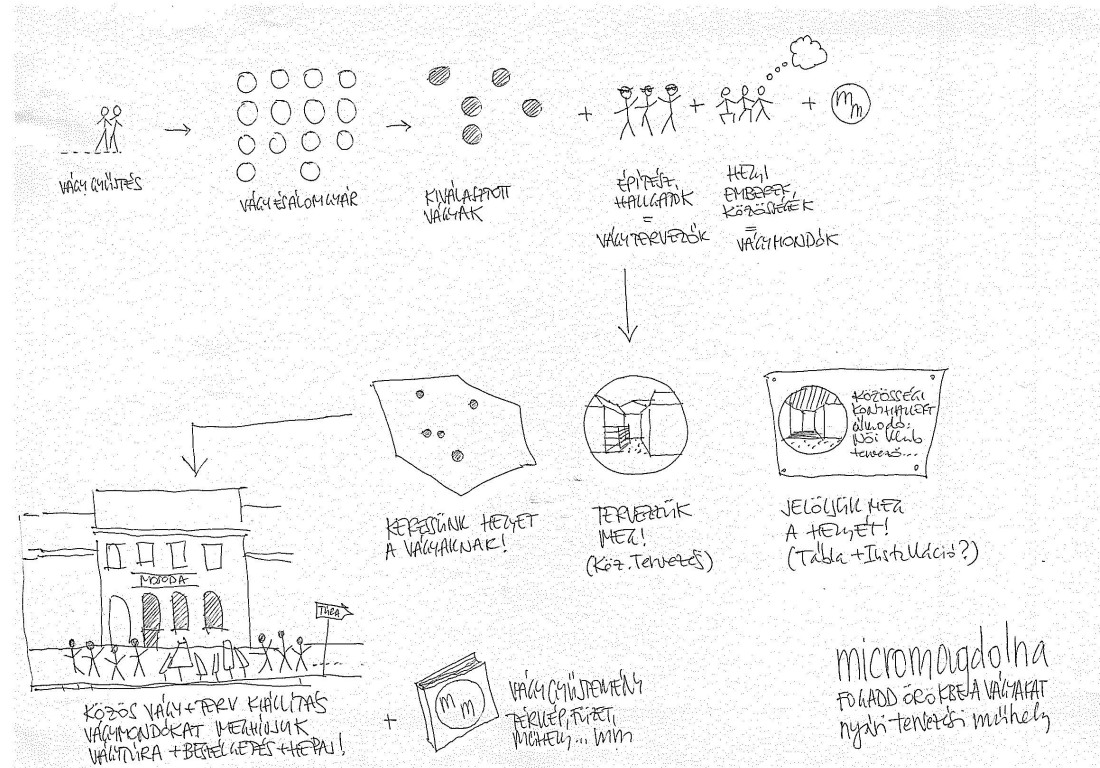 VÁGYGYŰJTÉS
VÁGY ÉS ÁLOMGYÁR
KIVÁLASZTOTT
VÁGYAK
+
ÉPÍTÉSZ
HALLGATÓK
=
VÁGYTERVEZŐK
+
HELYI
EMBEREK,
KÖZÖSSÉGEK
=
VÁGYMONDÓK
+
mm
KERESÜNK HELYET
A VÁGYAKNAK!
TERVEZZÜK
MEG!
(Köz. Tervezés)
KÖZÖSSÉGI
KONTHALLEFT
álmodó:
Női klub
tervező...
JELÖLJÜK MEG
A HELYÉT!
(Tábla + Installáció?)
MOSODA
TÚRA
KÖZÖS VÁGY+TERV KIÁLLÍTÁS
VÁGYMONDÓKAT MEGHÍVJUK
VÁGYTÚRA + BESZÉLGETÉS + HEPAJ!
+
mm
VÁGYGYŰJTEMÉNY
TÉRKÉP, FÜZET,
MŰHELY... mm
micromagdolna
FOGADD ÖRÖKBE A VÁGYAKAT
nyári tervezési műhely